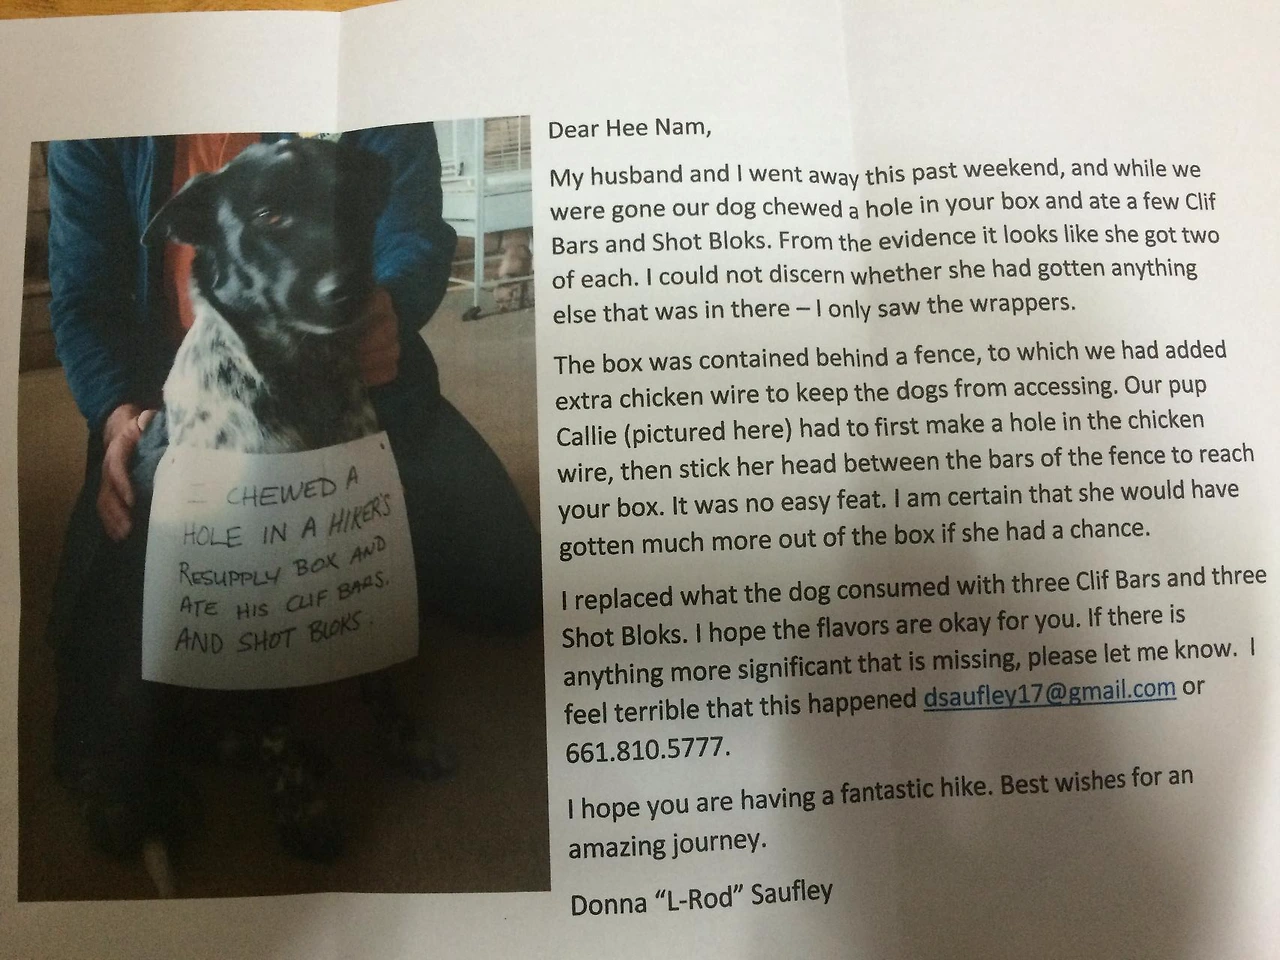 I CHEWED A
HOLE IN A HIKER'S
RESUPPLY BOX AND
ATE HIS CLIF BARS.
AND SHOT BLOKS.
Dear Hee Nam,
My husband and I went away this past weekend, and while we
were gone our dog chewed a hole in your box and ate a few Clif
Bars and Shot Bloks. From the evidence it looks like she got two
of each. I could not discern whether she had gotten anything
else that was in there – I only saw the wrappers.
The box was contained behind a fence, to which we had added
extra chicken wire to keep the dogs from accessing. Our pup
Callie (pictured here) had to first make a hole in the chicken
wire, then stick her head between the bars of the fence to reach
your box. It was no easy feat. I am certain that she would have
gotten much more out of the box if she had a chance.
I replaced what the dog consumed with three Clif Bars and three
Shot Bloks. I hope the flavors are okay for you. If there is
anything more significant that is missing, please let me know. I
feel terrible that this happened dsaufley17@gmail.com or
661.810.5777.
I hope you are having a fantastic hike. Best wishes for an
amazing journey.
Donna “L-Rod” Saufley